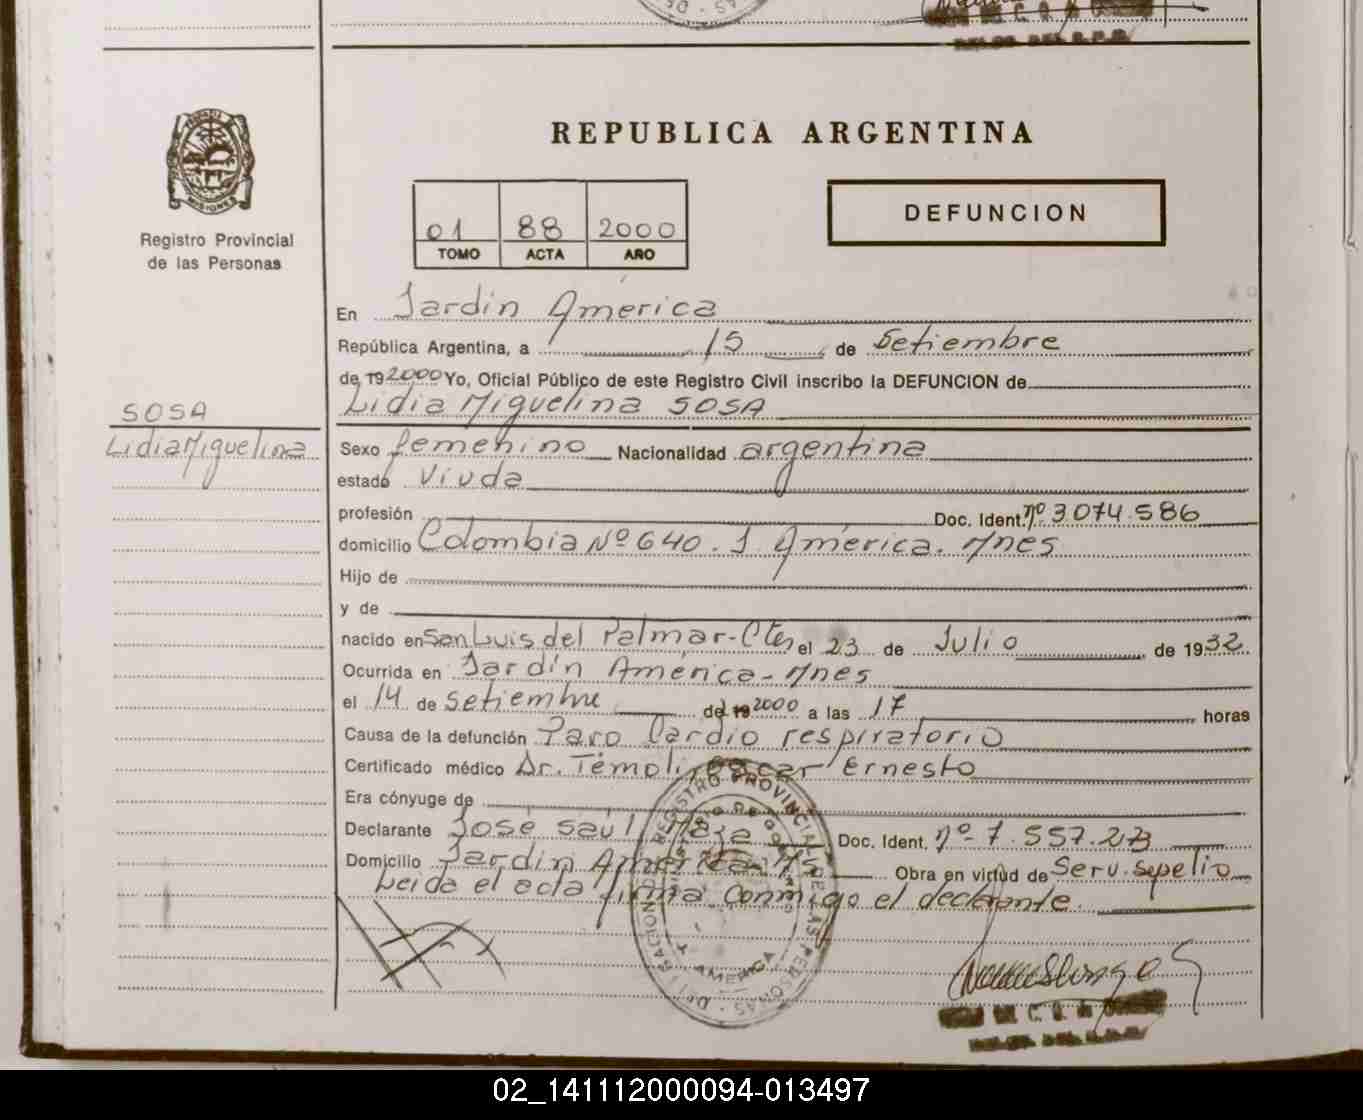 REPUBLICA ARGENTINA
MISIONES
Registro Provincial
de las Personas
01 88 2000
TOMO ACTA AÑO
DEFUNCION
En Jardín América
República Argentina, a 15 de Setiembre
de 19 2000 Yo, Oficial Público de este Registro Civil inscribo la DEFUNCION de
Lidia Miguelina SOSA
SOSA
Lidia Miguelina
Sexo femenino Nacionalidad argentina
estado Viuda
profesión Doc. Ident. nº 3.074.586
domicilio Colombia Nº 640. J. América. Mnes
Hijo de
y de
nacido en San Luis del Palmar-Ctes el 23 de Julio de 1932
Ocurrida en Jardín América-Mnes
el 14 de setiembre del 19 2000 a las 17 horas
Causa de la defunción Paro Cardio respiratorio
Certificado médico Dr. Témoli, Oscar Ernesto
Era cónyuge de
Declarante José Saúl Doc. Ident. nº 7.557.273
Domicilio Jardín América-Mns Obra en virtud de Serv. sepelio
Leida el acta firma conmigo el declarante.
REGISTRO PROVINCIAL DE LAS PERSONAS
J. AMERICA
02_141112000094-013497